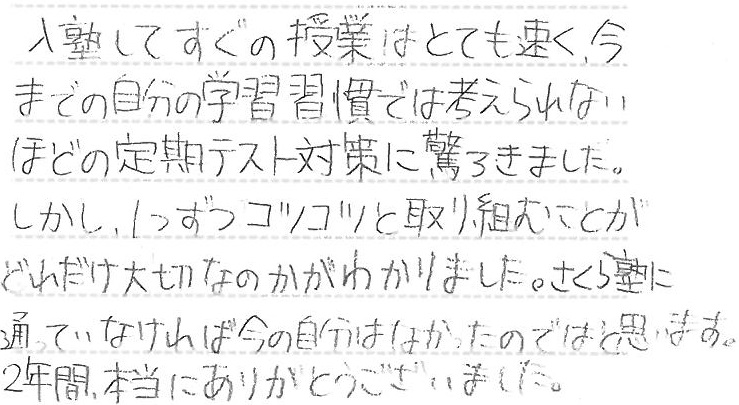 入塾してすぐの授業はとても速く、今
までの自分の学習習慣では考えられない
ほどの定期テスト対策に驚ろきました。
しかし、1つずつコツコツと取り組むことが
どれだけ大切なのかがわかりました。さくら塾に
通っていなければ今の自分はなかったのではと思います。
2年間、本当にありがとうございました。